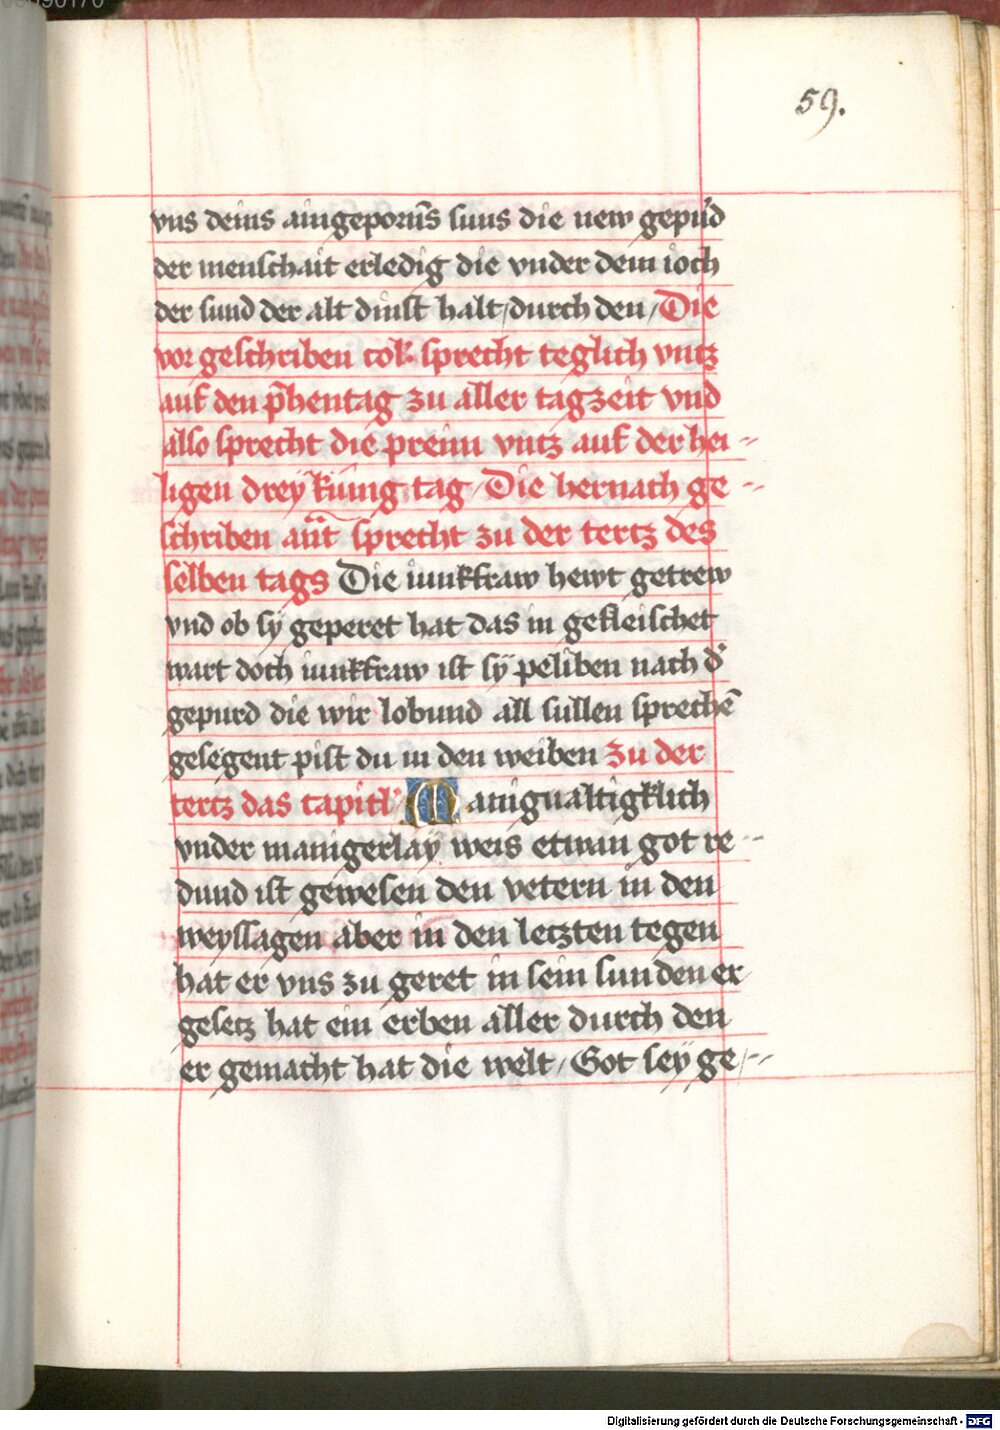 59.
vns deins aingeporñs suns die new gepu'd
der menschait erledig die vnder dem ioch
der sund der alt dinst halt/durch den/Die
vor geschriben col. sprecht teglich vntz
auf den p̃hentag zu aller tagzeit vnd
also sprecht die preim vntz auf der hei
ligen dreÿ kunig tag/Die hernach ge
schriben añt sprecht zu der tertz des
selben tags Die iunkfraw hewt getrew
vnd ob sÿ geperet hat das in gefleischet
wart doch iunkfraw ist sÿ peliben nach d'
gepurd die wir lobund all sullen spreche͂
gesegent pist du in den weiben Zu der
tertz das capitl' Manigualtigklich
vnder manigerlaÿ weis etwan got re
dund ist gewesen den vetern in den
weyssagen aber in den letzten tegen
hat er vns zu geret in sein sun den er
gesetz hat ein erben aller durch den
er gemacht hat die welt/Got seÿ ge
Digitalisierung gefördert durch die Deutsche Forschungsgemeinschaft - DFG